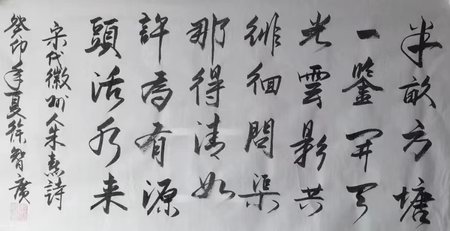 半畝方塘
一鑒開天
光雲影共
徘徊問渠
那得清如
許為有源
頭活水来
宋代徽州人朱熹詩
癸卯年夏徐智廣